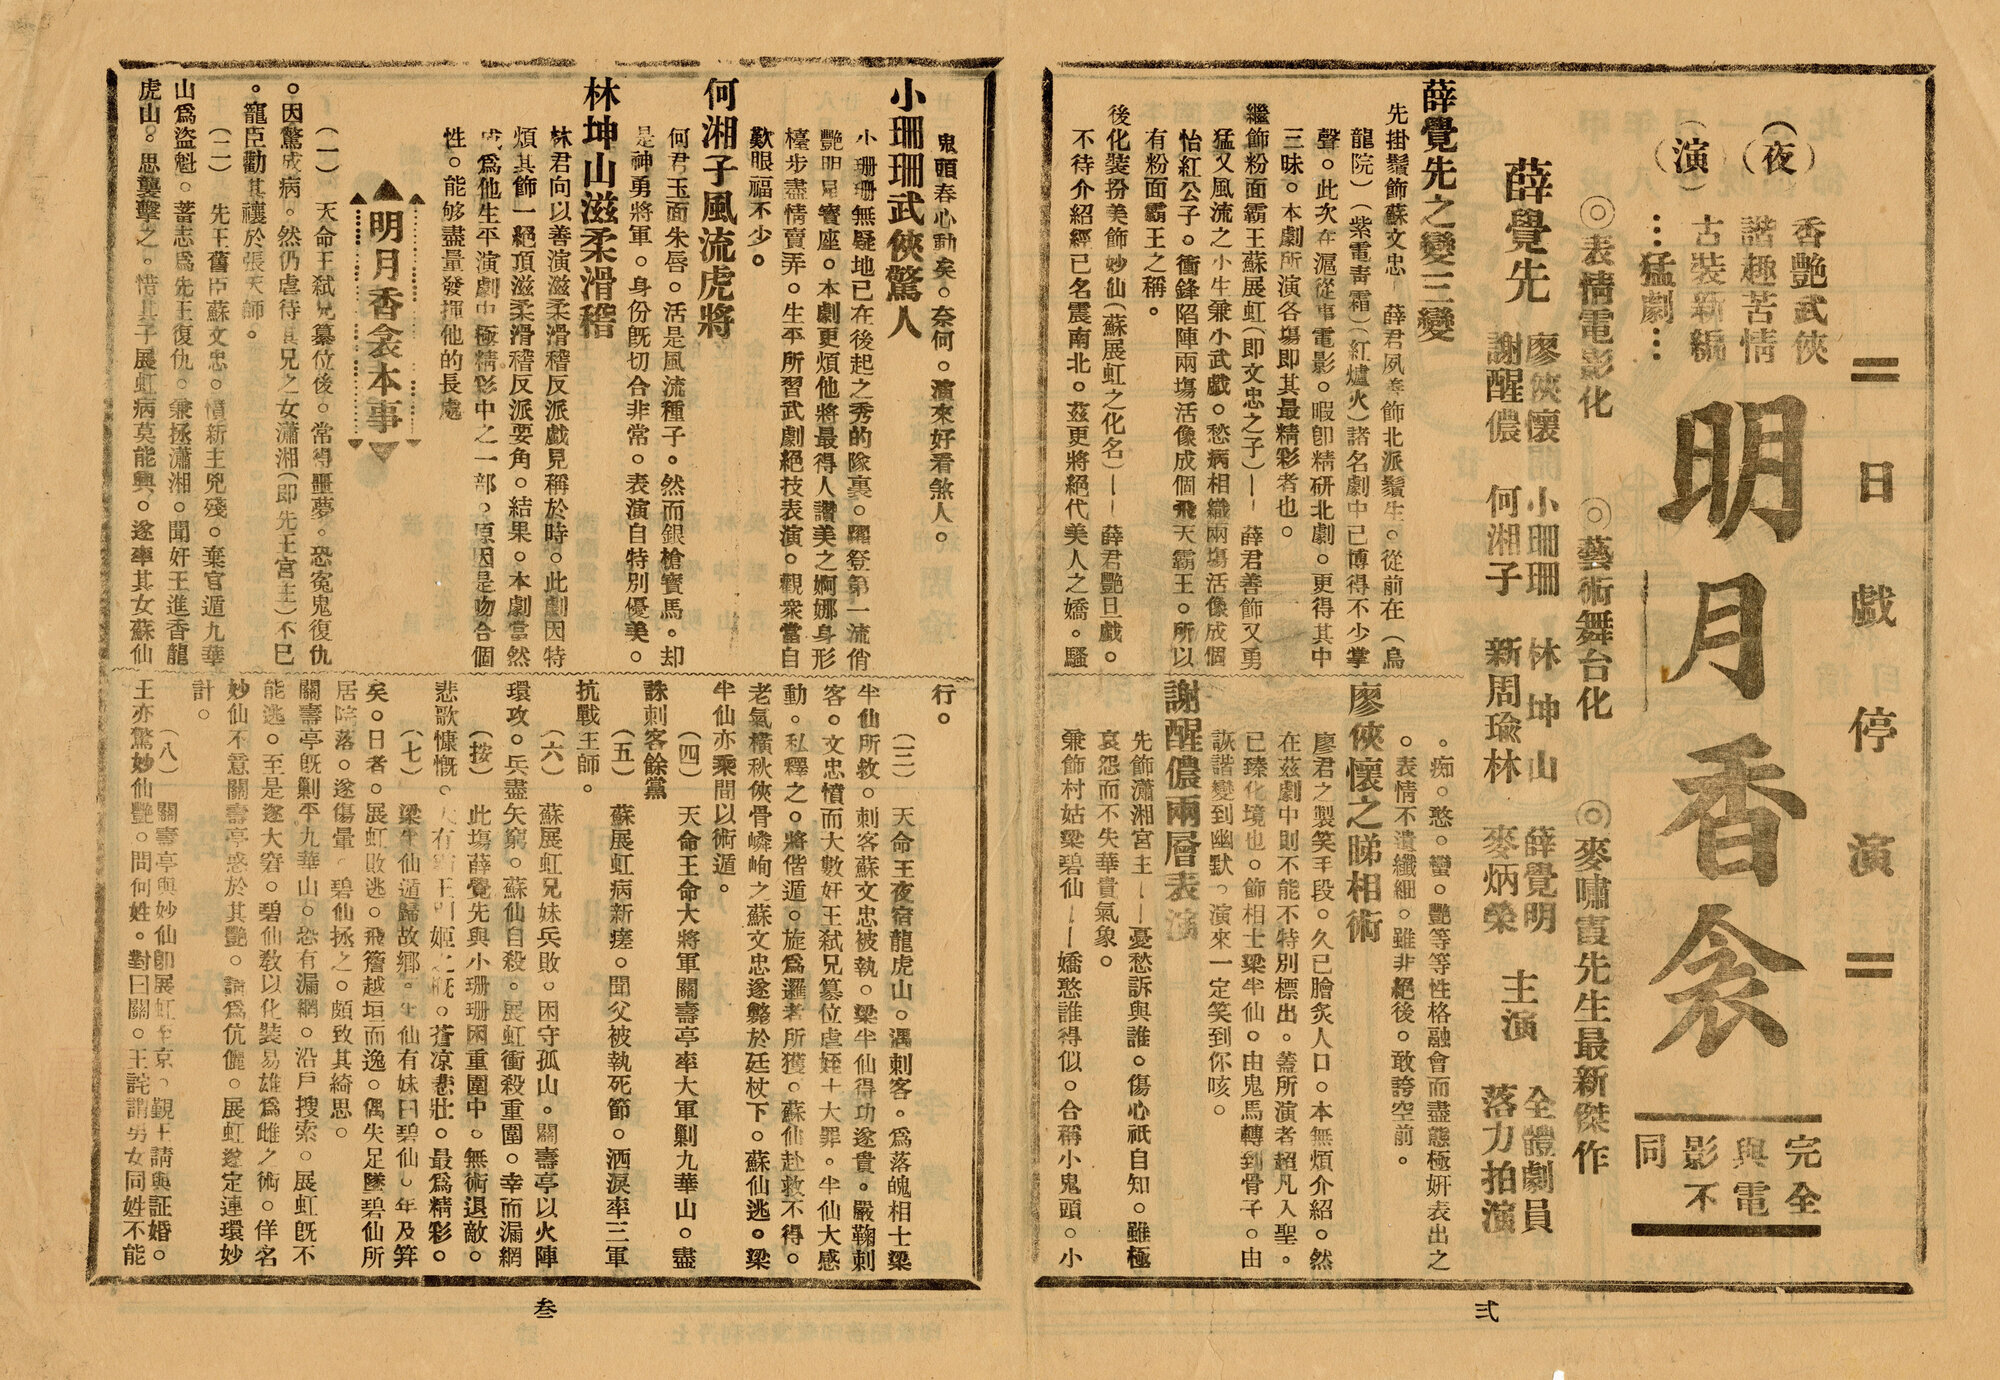 ＝日戲停演＝
（夜）
（演）
香艷武俠
諧趣苦情
古裝新編
…猛劇…
明月香衾
完全
與電
影不
同
◎表情電影化　◎藝術舞台化　◎麥嘯霞先生最新傑作
薛覺先
廖俠懷　小珊珊　林坤山　薛覺明　全體劇員
謝醒儂　何湘子　新周瑜林　麥炳榮　主演　落力拍演
薛覺先之變三變
先掛鬚飾蘇文忠—薛君夙善飾北派鬚生。從前在（烏
龍院）（紫電青霜）（紅爐火）諸名劇中已博得不少掌
聲。此次在滬從事電影。暇卽精研北劇。更得其中
三昧。本劇所演各塲即其最精彩者也。
繼飾粉面霸王蘇展虹（即文忠之子）——薛君善飾又勇
猛又風流之小生兼小武戲。愁病相纖兩塲活像成個
怡紅公子。衝鋒陷陣兩塲活像成個飛天霸王。所以
有粉面霸王之稱。
後化裝扮美飾妙仙（蘇展虹之化名）——薛君艷旦戲。
不待介紹經已名震南北。茲更將絕代美人之嬌。騷
。痴。憨。蠻。艷等等性格融會而盡態極妍表出之
。表情不遺纖細。雖非絕後。敢誇空前。
廖俠懷之睇相術
廖君之製笑手段。久已膾炙人口。本無煩介紹。然
在茲劇中則不能不特別標出。蓋所演者超凡入聖。
已臻化境也。飾相士梁半仙。由鬼馬轉到骨子。由
詼諧變到幽默。演來一定笑到你咳。
謝醒儂兩層表演
先飾瀟湘宮主——憂愁訴與誰。傷心祇自知。雖極
哀怨而不失華貴氣象。
兼飾村姑梁碧仙——嬌憨誰得似。合稱小鬼頭。小
弍
鬼頭春心動矣。奈何。演來好看煞人。
小珊珊武俠驚人
小珊珊無疑地已在後起之秀的隊裏。躍登第一流俏
艷明星寶座。本劇更煩他將最得人讚美之婀娜身形
檯步盡情賣弄。生平所習武劇絕技表演。觀衆當自
歎眼福不少。
何湘子風流虎將
何君玉面朱唇。活是風流種子。然而銀槍寶馬。却
是神勇將軍。身份旣切合非常。表演自特別優美。
林坤山滋柔滑稽
林君向以善演滋柔滑稽反派戲見稱於時。此劇因特
煩其飾一絕頂滋柔滑稽反派要角。結果。本劇當然
成爲他生平演劇中極精彩中之一部。原因是吻合個
性。能够盡量發揮他的長處
明月香衾本事
（一）　天命王弒兄篡位後。常得噩夢。恐寃鬼復仇
。因驚成病。然仍虐待其兄之女瀟湘（即先王宮主）不已
。寵臣勸其禳於張天師。
（二）　先王舊臣蘇文忠。憤新主兇殘。棄官遁九華
山爲盜魁。蓄志爲先王復仇。兼拯瀟湘。聞奸王進香龍
虎山。思襲擊之。惜其子展虹病莫能興。遂率其女蘇仙
行。
（三）　天命王夜宿龍虎山。遇刺客。爲落魄相士梁
半仙所救。刺客蘇文忠被執。梁半仙得功遂貴。嚴鞫刺
客。文忠憤而大數奸王弒兄篡位虐姪十大罪。半仙大感
動。私釋之。將偕遁。旋爲邏者所獲。蘇仙赴救不得。
老氣橫秋俠骨嶙峋之蘇文忠遂斃於廷杖下。蘇仙逃。梁
半仙亦乘間以術遁。
（四）　天命王命大將軍關壽亭率大軍剿九華山。盡
誅刺客餘黨
（五）　蘇展虹病新瘥。聞父被執死節。洒淚率三軍
抗戰王師。
（六）　蘇展虹兄妹兵敗。困守孤山。關壽亭以火陣
環攻。兵盡矢窮。蘇仙自殺。展虹衝殺重圍。幸而漏網
（按）　此塲薛覺先與小珊珊困重圍中。無術退敵。
悲歌慷慨。大有霸王別姬之槪。蒼凉悲壯。最爲精彩。
（七）　梁半仙遁歸故鄉。半仙有妹曰碧仙。年及笄
矣。日者。展虹敗逃。飛簷越垣而逸。偶失足墜碧仙所
居院落。遂傷暈。碧仙拯之。頗致其綺思。
關壽亭旣剿平九華山。恐有漏網。沿戶搜索。展虹旣不
能逃。至是遂大窘。碧仙敎以化裝易雄爲雌之術。佯名
妙仙不意關壽亭惑於其艷。請爲伉儷。展虹遂定連環妙
計。
（八）　關壽亭與妙仙卽展虹至京。覲王請與証婚。
王亦驚妙仙艷。問何姓。對曰關。王詫謂男女同姓不能
叁